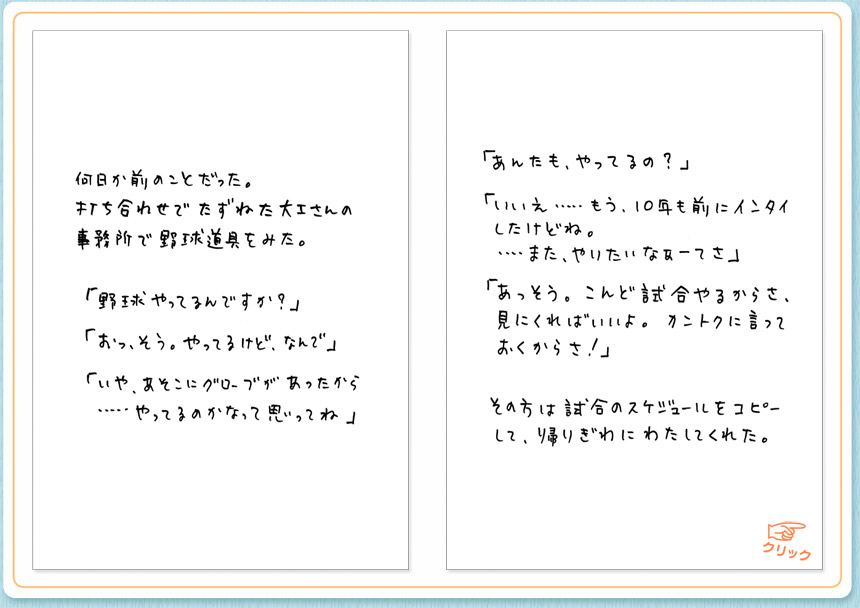 何日か前のことだった。
打ち合わせでたずねた大工さんの
事務所で野球道具をみた。
「野球やってるんですか？」
「おっ、そう。やってるけど、なんで」
「いや、あそこにグローブがあったから
……やってるのかなって思ってね」
「あんたも、やってるの？」
「いいえ……もう、10年も前にインタイ
したけどね。
‥‥また、やりたいなぁーてさ」
「あっそう。こんど試合やるからさ、
見にくればいいよ。カントクに言って
おくからさ！」
その方は試合のスケジュールをコピー
して、帰りぎわにわたしてくれた。
クリック